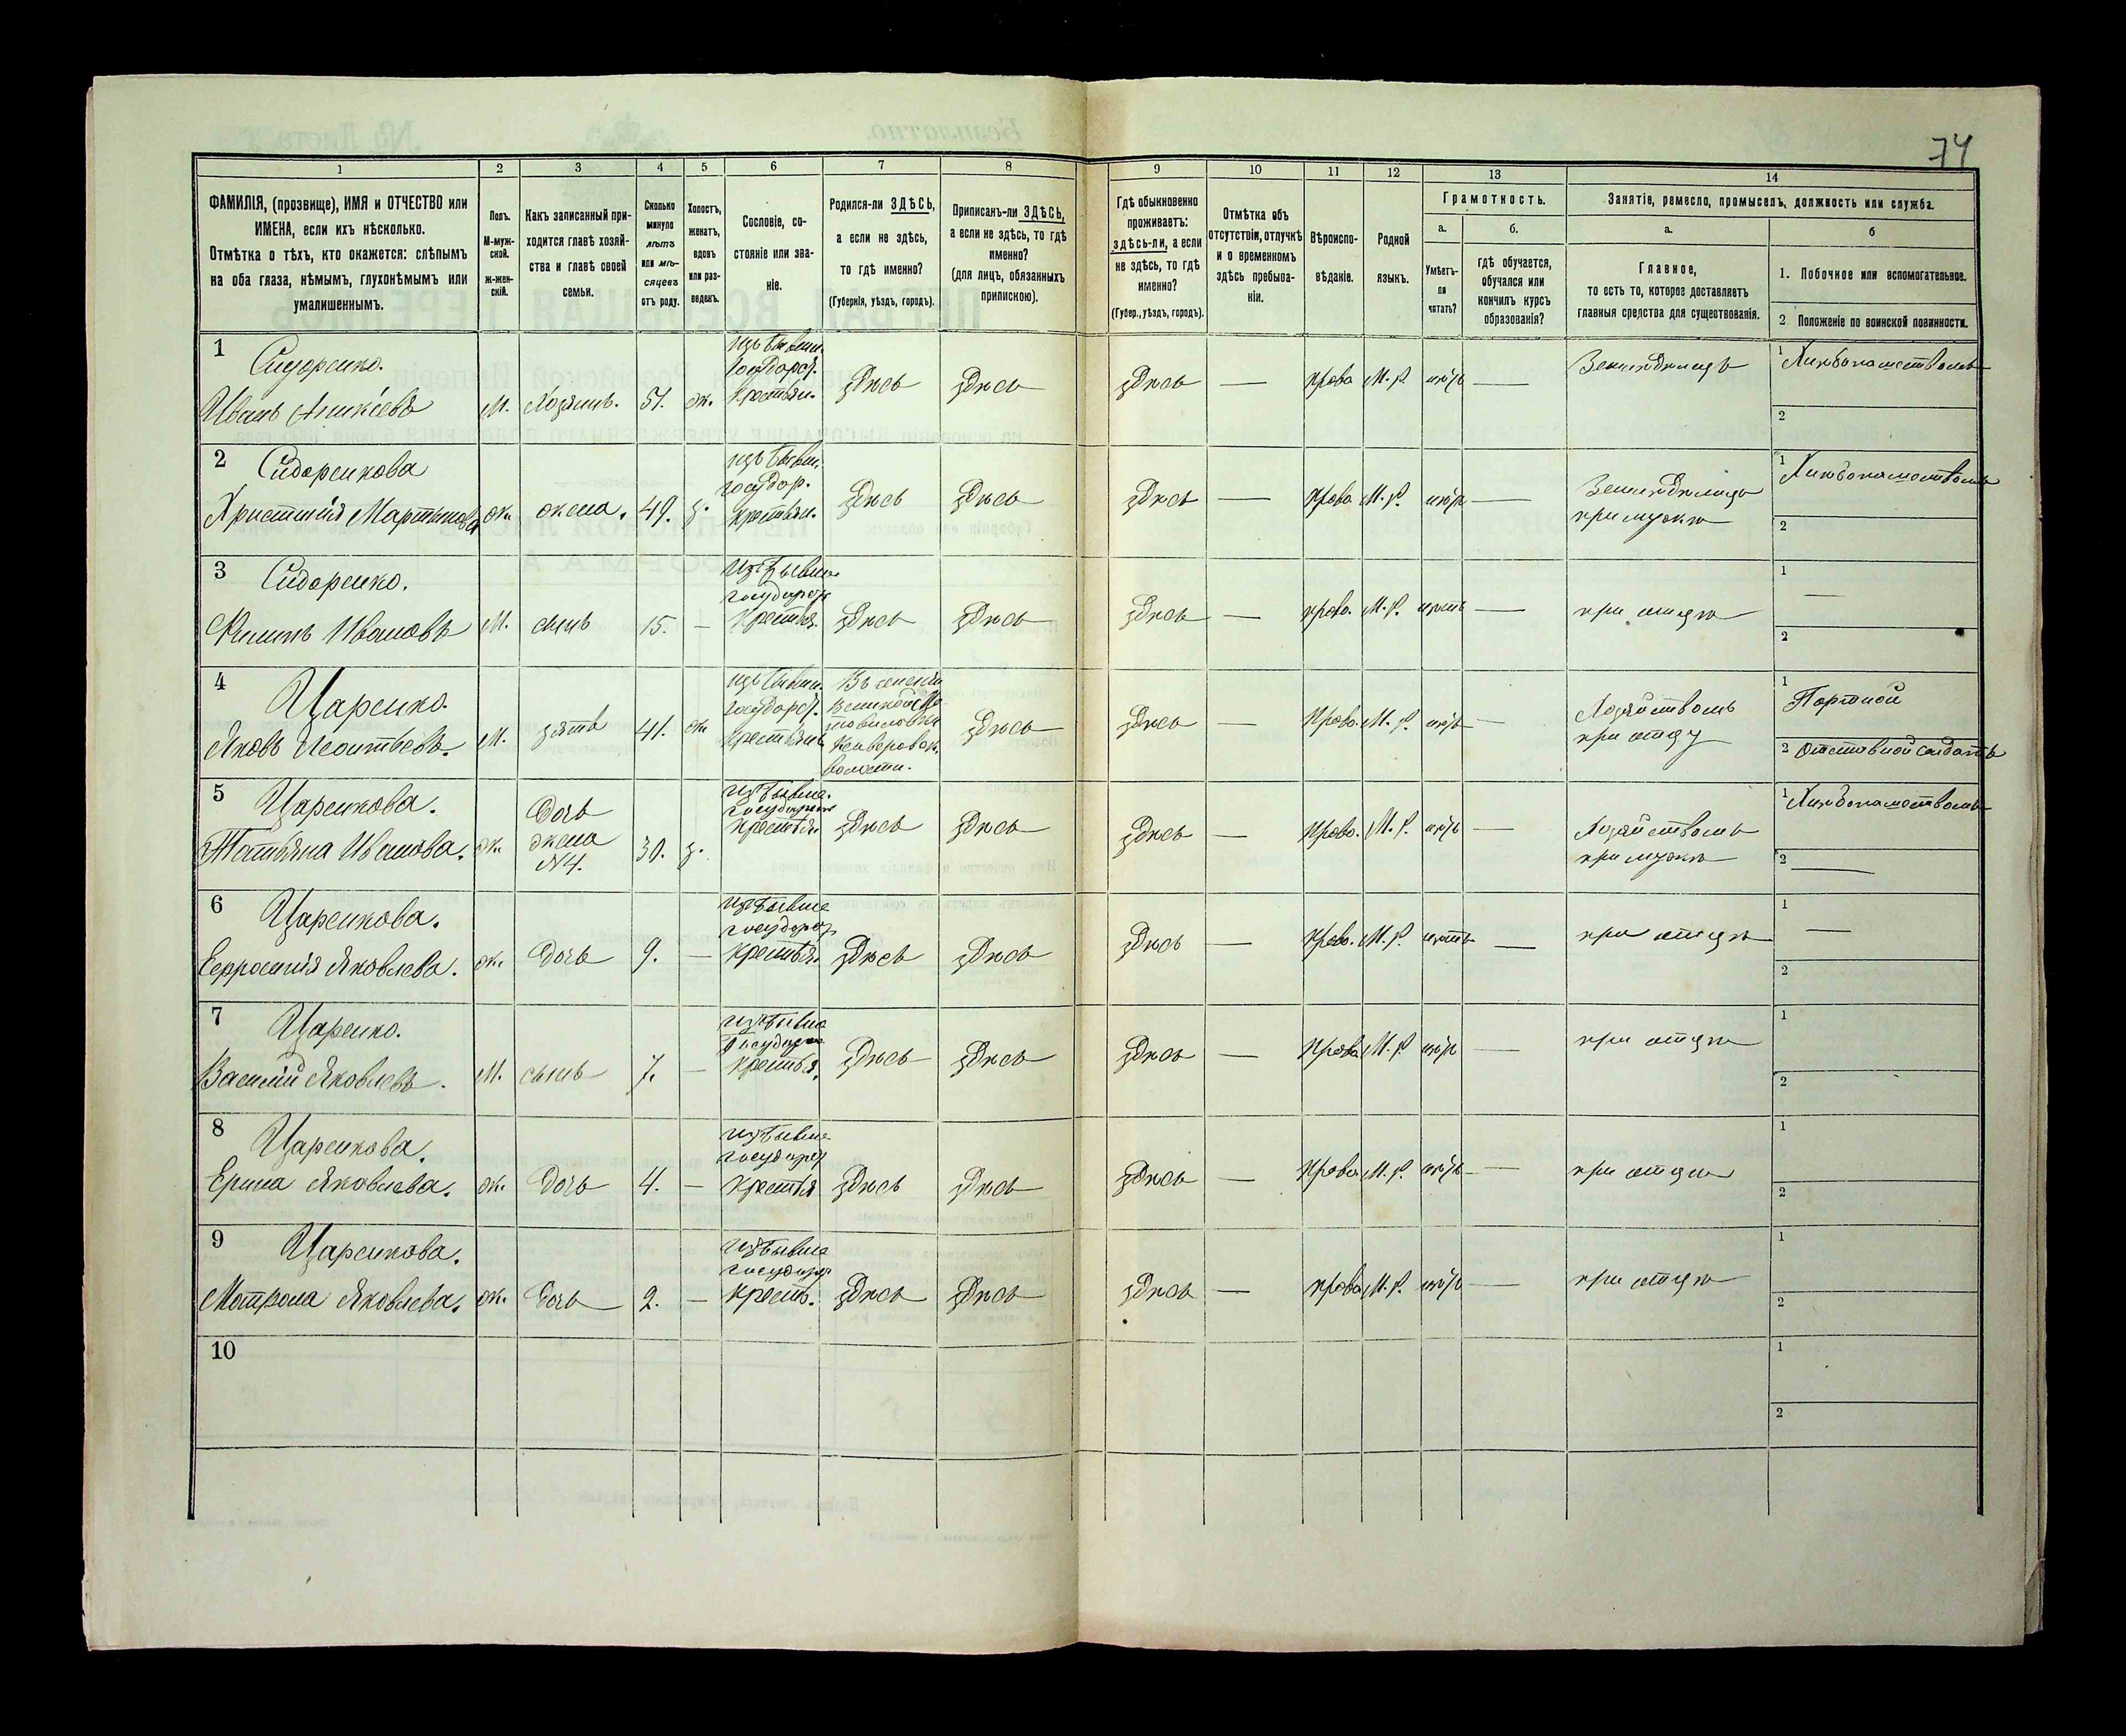 74
1
2
3
4
5
6
7
8
9
10
11
12
13
14
ФАМИЛІЯ, (прозвище), ИМЯ и ОТЧЕСТВО или
ИМЕНА, если ихъ нѣсколько.
Отмѣтка о тѣхъ, кто окажется: слѣпымъ
на оба глаза, нѣмымъ, глухонѣмымъ или
умалишеннымъ.
Полъ.
М-муж-
ской.
Ж-жен-
скій.
Какъ записанный при-
ходится главѣ хозяй-
ства и главѣ своей
семьи.
Сколько
минуло
лѣтъ
или мѣ-
сяцевъ
отъ роду.
Холостъ,
женатъ,
вдовъ
или раз-
веденъ.
Сословіе, со-
стояніе или зва-
ніе.
Родился-ли ЗДѢСЬ,
а если не здѣсь,
то гдѣ именно?
(Губернія, уѣздъ, городъ).
Приписанъ-ли ЗДѢСЬ,
а если не здѣсь, то гдѣ
именно?
(для лицъ, обязанныхъ
припискою).
Гдѣ обыкновенно
проживаетъ:
здѣсь-ли, а если
не здѣсь, то гдѣ
именно?
(Губер., уѣздъ, городъ).
Отмѣтка объ
отсутствіи, отлучкѣ
и о временномъ
здѣсь пребыва-
ніи.
Вѣроиспо-
вѣданіе.
Родной
языкъ.
Грамотность.
а.
Умѣетъ-
ли
читать?
б.
гдѣ обучается,
обучался или
кончилъ курсъ
образованія?
Занятіе, ремесло, промыселъ, должность или служба.
а.
Главное,
то есть то, которое доставляетъ
главныя средства для существованія.
б
1. Побочное или вспомогательное.
2 Положеніе по воинской повинности.
1 Сидоренко.
Иванъ М. Хозяинъ. 51. ж. изъ бывш. Государст. Крестьян. здѣсь здѣсь здѣсь — Право М.Р. нѣтъ — Земледѣлецъ 1 Хлѣбопашествомъ
2
2 Сидоренкова
Христинія Мартынова ж. жена. 49. з. изъ бывш. государ. крестьян. здѣсь здѣсь здѣсь — Право М.Р. нѣтъ — Земледѣлица при мужѣ 1 Хлѣбопашествомъ
2
3 Сидоренко.
Филипъ Ивановъ М. сынъ 15. — изъ бывше государст крестья. здѣсь здѣсь здѣсь — право. М.Р. нѣтъ — при отцѣ 1 —
2
4 Царенко.
Яковъ Леонтьевъ. М. зять 41. ж. изъ бывш. государст. крестьянъ Въ селеніи волости. здѣсь здѣсь — Право. М.Р. нѣтъ — Хозяйствомъ при отцу 1 Портной
2 Отставной солдатъ
5 Царенкова.
Татьяна Иванова. ж. Дочь жена №4. 30. з. изъ бывше. государст крестья. здѣсь здѣсь здѣсь — Право. М.Р. нѣтъ — Хозяйствомъ при мужѣ 1 Хлѣбопашествомъ
2 —
6 Царенкова.
Яковлева. ж. Дочь 9. — изъ бывше государст крестья. здѣсь здѣсь здѣсь — Право. М.Р. нѣтъ — при отцѣ 1 —
2
7 Царенко.
Василій Яковлевъ. М. сынъ 7. — изъ бывше Государст крестья. здѣсь здѣсь здѣсь — Право М.Р. нѣтъ — при отцѣ 1
2
8 Царенкова.
Ерина Яковлева. ж. Дочь 4. — изъ бывше государст крестья здѣсь здѣсь здѣсь — Право М.Р. нѣтъ — при отцѣ 1
2
9 Царенкова.
Мотрона Яковлева. ж. Дочь 2. — изъ бывше государст крестья. здѣсь здѣсь здѣсь — право М.Р. нѣтъ — при отцѣ 1
2
10
1
2